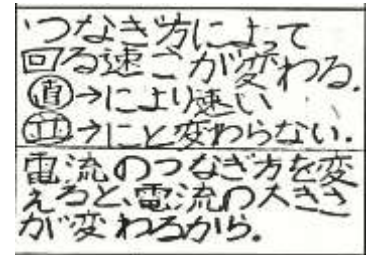 つなき方によって
回る速こが変わる.
直→により速い
並→にと変わらない.
電流のつなぎ方を変
えると、電流の大きさ
が変わるから.